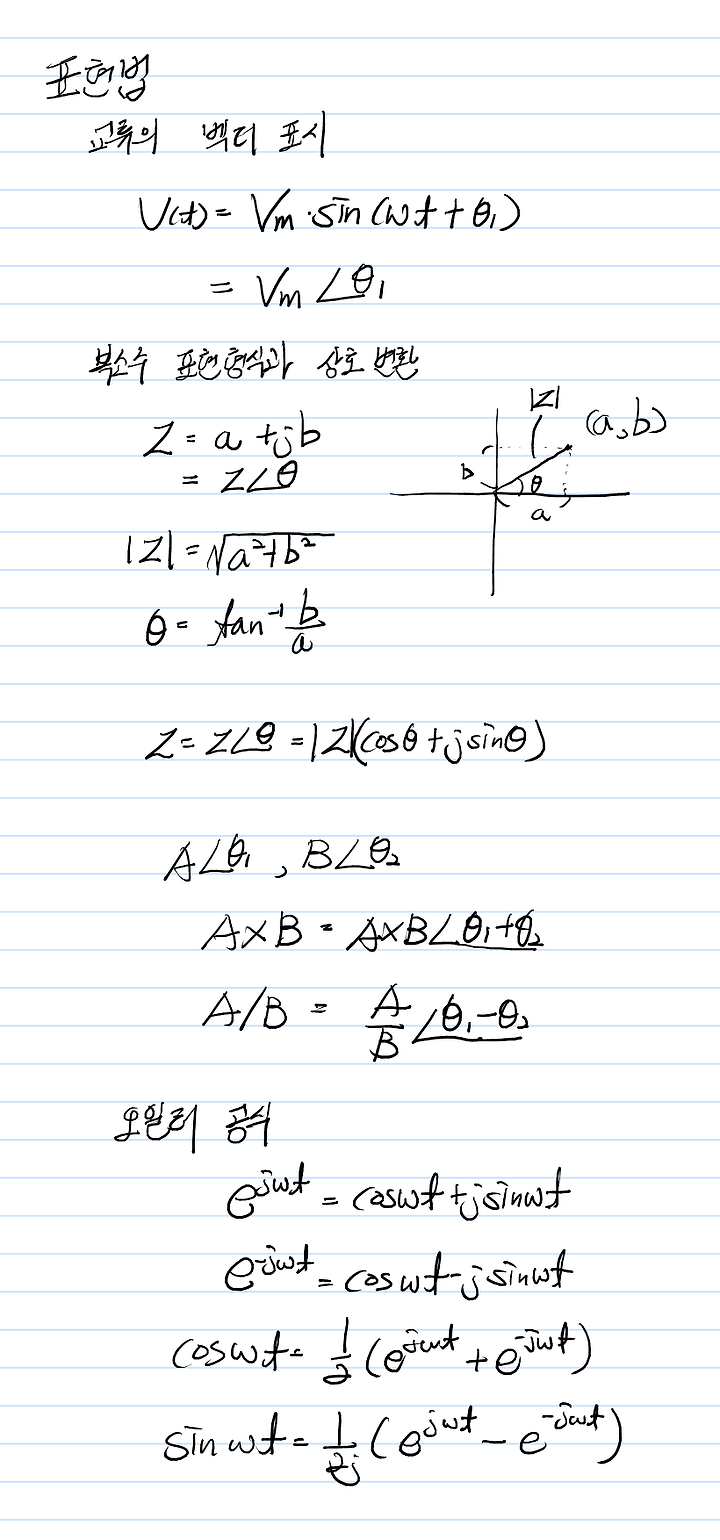 표현법
교류의 벡터 표시
V(t) = Vm·sin(ωt + θ₁)
= Vm∠θ₁
복소수 표현형식과 상호 변환
Z = a + jb
= Z∠θ
|Z| = √a²+b²
θ = tan⁻¹ b/a
|Z|
(a,b)
b
θ
a
Z = Z∠θ = |Z|(cosθ + jsinθ)
A∠θ₁ , B∠θ₂
A×B = A×B∠θ₁+θ₂
A/B = A/B ∠θ₁-θ₂
오일러 공식
e^jωt = cosωt + jsinωt
e^-jωt = cosωt - jsinωt
cosωt = 1/2 (e^jωt + e^-jωt)
sinωt = 1/2j (e^jωt - e^-jωt)